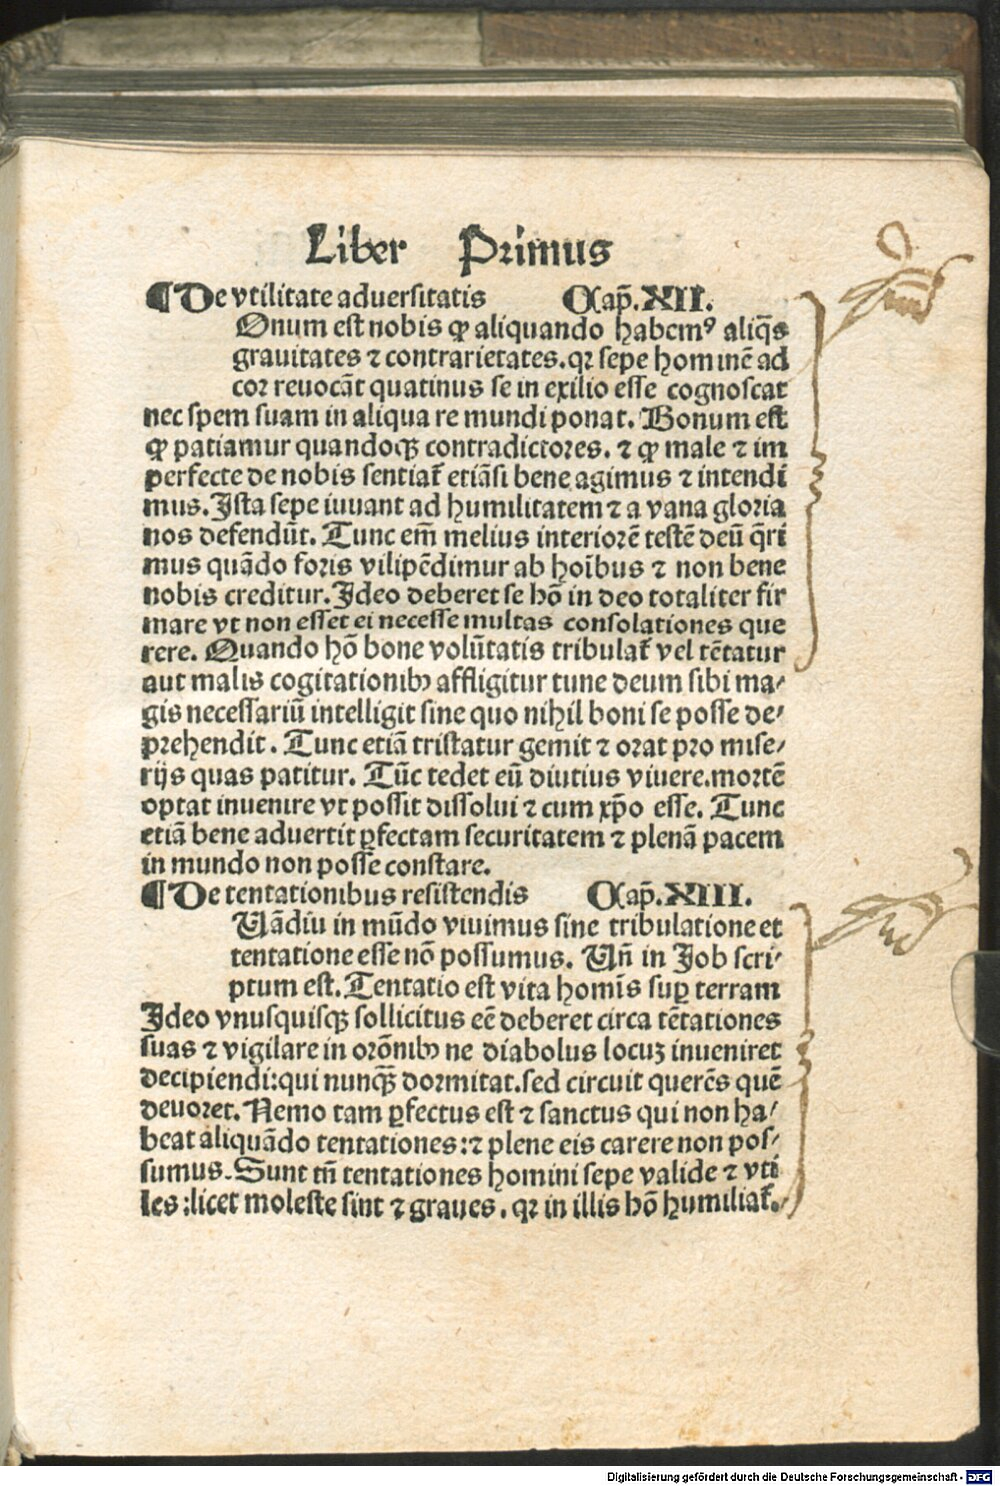 Liber Primus
¶ De vtilitate aduersitatis Cap̄.XII.
Onum est nobis ꝙ aliquando habemꝰ aliq̄s
grauitates ⁊ contrarietates.qꝛ sepe hominē ad
cor reuocāt quatinus se in exilio esse cognoscat
nec spem suam in aliqua re mundi ponat. Bonum est
ꝙ patiamur quandoqꝫ contradictores. ⁊ ꝙ male ⁊ im
perfecte de nobis sentiat̄ etiāsi bene agimus ⁊ intendi
mus. Ista sepe iuuant ad humilitatem ⁊ a vana gloria
nos defendūt. Tunc em̄ melius interiorē testē deū q̄ri
mus quādo foris vilipēdimur ab hoībus ⁊ non bene
nobis creditur. Ideo deberet se hō in deo totaliter fir
mare vt non esset ei necesse multas consolationes que
rere. Quando hō bone volūtatis tribulat̄ vel tētatur
aut malis cogitationibꝫ affligitur tunc deum sibi ma⸗
gis necessariū intelligit sine quo nihil boni se posse de⸗
prehendit. Tunc etiā tristatur gemit ⁊ orat pro mise⸗
rijs quas patitur. Tūc tedet eū diutius viuere.mortē
optat inuenire vt possit dissolui ⁊ cum xp̄o esse. Tunc
etiā bene aduertit ꝑfectam securitatem ⁊ plenā pacem
in mundo non posse constare.
¶ De tentationibus resistendis Cap̄.XIII.
Uādiu in mūdo viuimus sine tribulatione et
tentatione esse nō possumus. Un̄ in Job scri⸗
ptum est. Tentatio est vita homīs suꝑ terram
Ideo vnusquisqꝫ sollicitus eē deberet circa tētationes
suas ⁊ vigilare in orōnibꝫ ne diabolus locuꝫ inueniret
decipiendi:qui nunqꝫ̄ dormitat.sed circuit querēs quē
deuoret. Nemo tam ꝑfectus est ⁊ sanctus qui non ha⸗
beat aliquādo tentationes:⁊ plene eis carere non pos⸗
sumus. Sunt tn̄ tentationes homini sepe valide ⁊ vti
les :licet moleste sint ⁊ graues. qꝛ in illis hō humiliat̄.
Digitalisierung gefördert durch die Deutsche Forschungsgemeinschaft - DFG